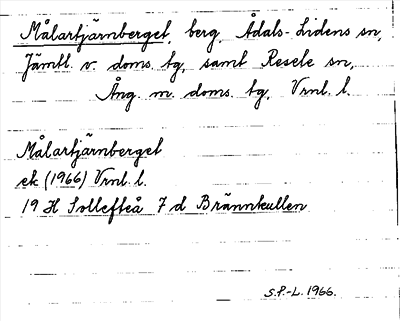 Målartjärnberget, berg, Ådals-Lidens sn,
Jämtl. v. doms. tg, samt Resele sn,
Ång. m. doms. tg, Vrnl. l.
Målartjärnberget
ek (1966) Vrnl. l.
19 H Sollefteå 7 d Brännkullen
S.P.-L. 1966.